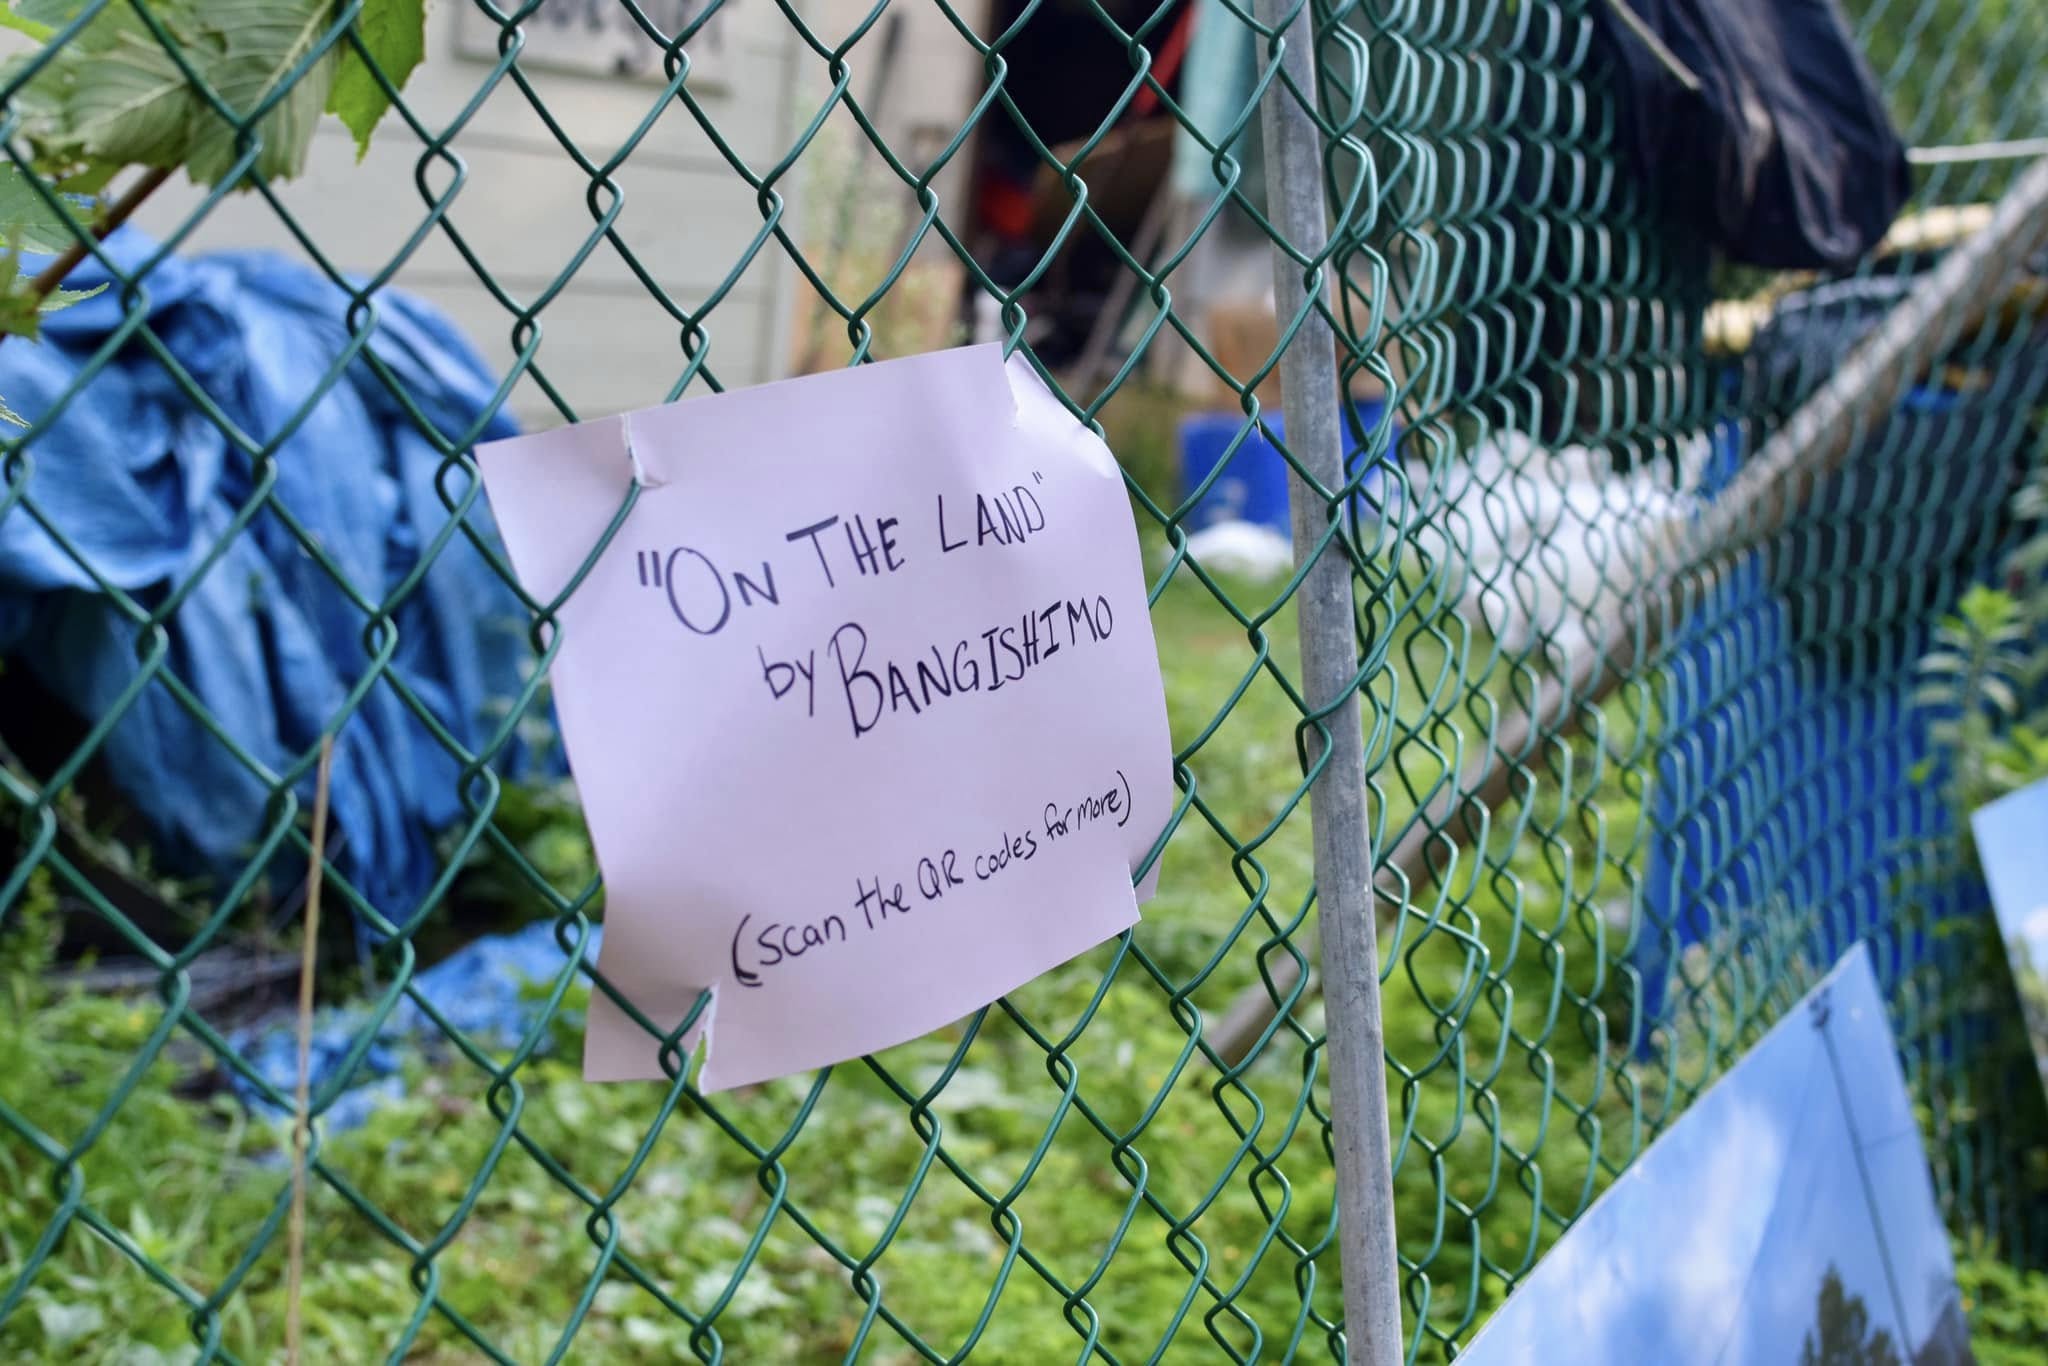 "ON THE LAND"
by BANGISHIMO
(scan the QR codes for more)